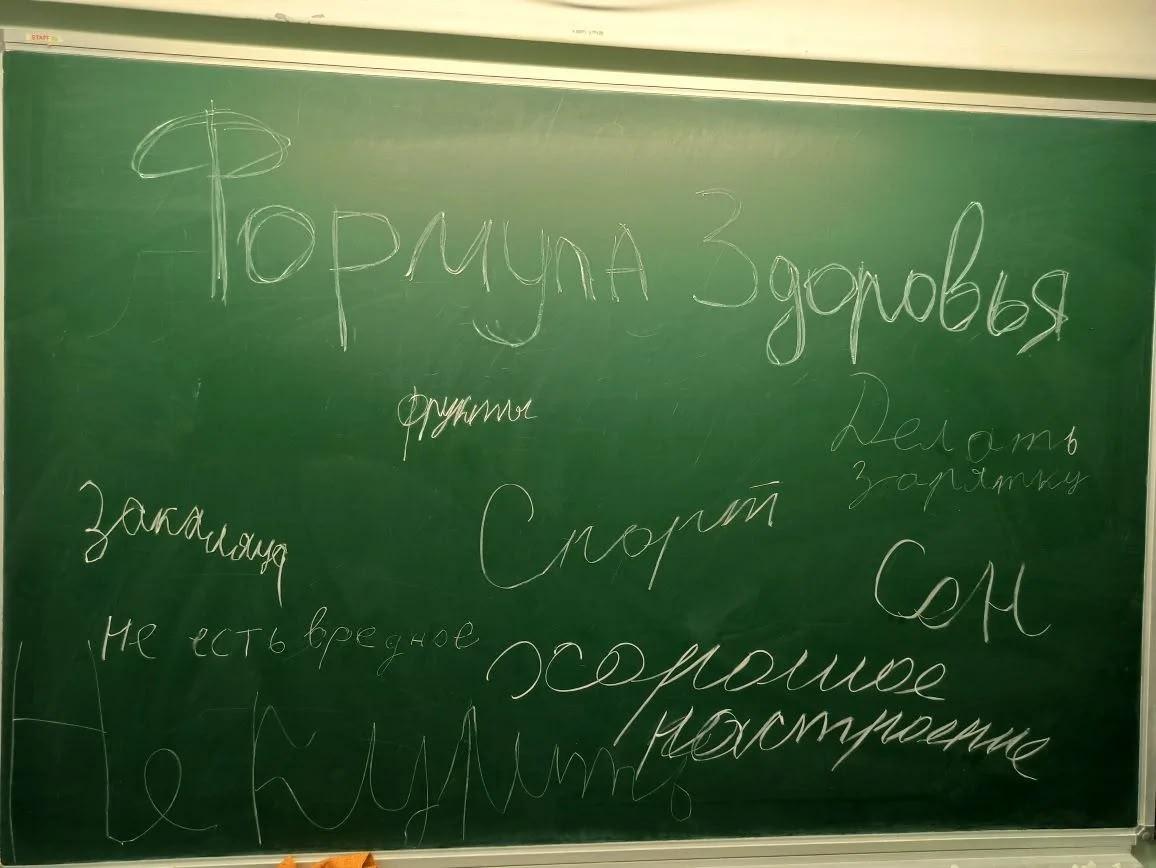 STAFF
Формула Здоровья
фрукты
Делать
зарятку
Спорт
Закаляця
Сон
Не есть вредное
хорошое
настроение
Не Курить